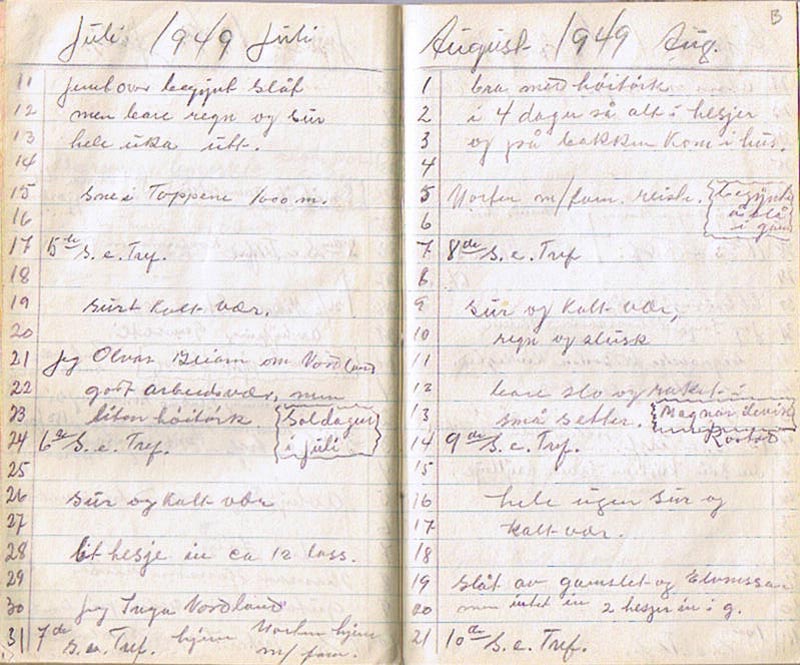 Juli 1949 Juli
11 begynt slåt
12 men bare regn og sur
13 hele uka utt.
14
15 Sne i Toppene 1000 m.
16
17 5de S. e. Tref.
18
19 Surt kalt vær.
20
21 Jeg Olvar Beiarn om Nordland
22 godt arbeidsvær, men
23 liten höitörk Soldager
24 6te S. e. Tref. i juli
25
26 Sur og kalt vær
27
28 hesje in ca 12 lass.
29
30 Jeg Inga Nordland
31 7de S. e. Tref. hjem
m/ fam.
August 1949 Aug. B
1 bra med höitörk
2 i 4 dager så alt i hesjer
3 og på bakken kom i hus.
4
5 m/ fam. reiste. begynte
6 å slå
i
7 8de S. e. Tref
8
9 Sur og kalt vær,
10 regn og slusk
11
12 bare slo og raket i
13 små setter. Magnar
14 9de S. e. Tref.
15
16 hele ugen sur og
17 kalt vær.
18
19 Slåt av gamslet og
20 men intet in 2 hesjer in i g.
21 10de S. e. Tref.